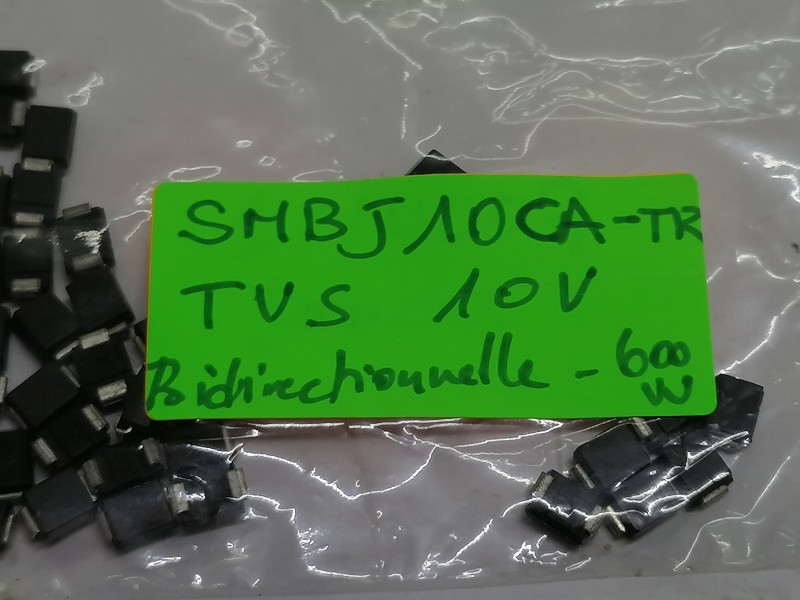 SMBJ10CA-TR
TVS 10V
Bidirectionnelle - 600 W